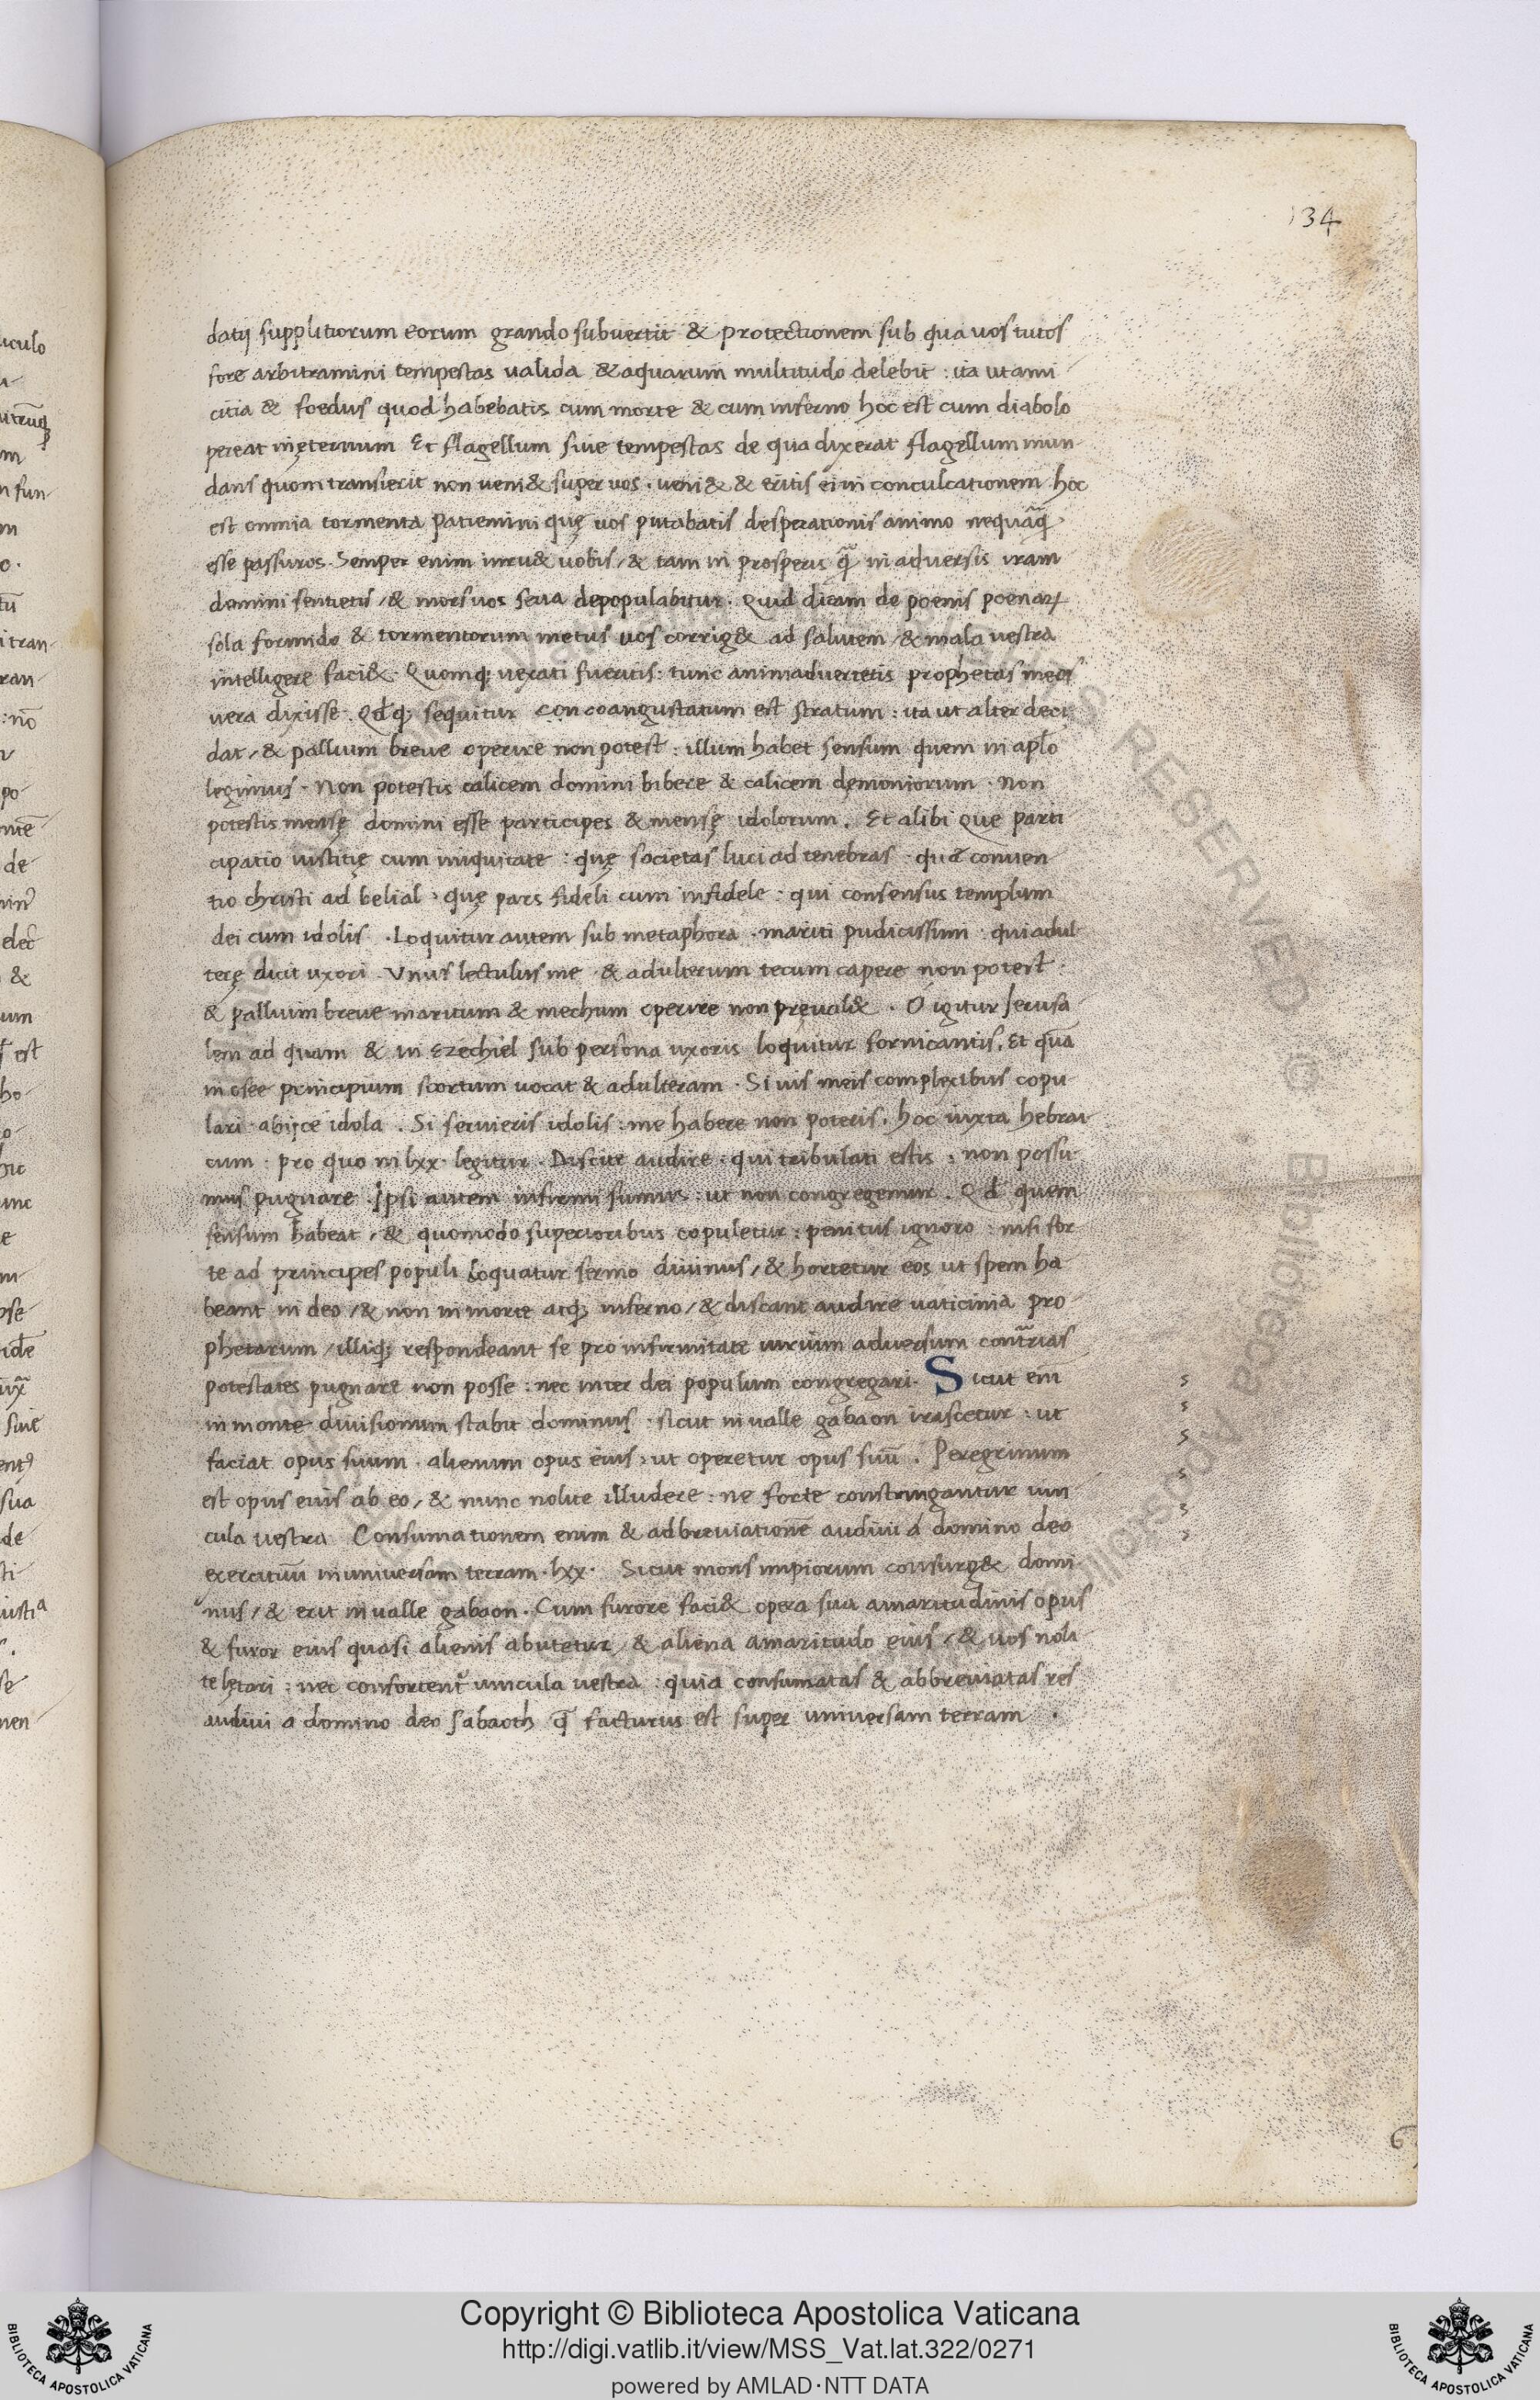 134
datij supplitiorum eorum grando subvertit & protectionem sub qua vos tutos
fore arbitramini tempestas valida & aquarum multitudo delebit : ita ut ami
citia & foedus quod habebatis cum morte & cum inferno hoc est cum diabolo
pereat inęternum Et flagellum sive tempestas de qua dixerat flagellum mun
dans quom transierit non veni& super vos . veni& & eritis ei in conculcationem hoc
est omnia tormenta patiemini quę vos putabatis desperationis animo nequaq̃
esse passuros. Semper enim inru& vobis, & tam in prosperis q̃ in adversis iram
domini sentietis, & morsuos seva depopulabitur. Quid dicam de poenis poenaꝝ
sola formido & tormentorum metus vos corrig& ad salutem, & mala vestra
intelligere faci&. Quomq; vexati fueritis : tunc animadvertetis prophetas meos
vera dixisse. Qd̄q; sequitur concoangustatum est stratum : ita ut alter deci
dat, & pallium breve operire non potest : illum habet sensum quem in apl̄o
legimus. Non potestis calicem domini bibere & calicem dęmoniorum . Non
potestis mensę domini esse participes & mensę idolorum. Et alibi Que parti
cipatio iustitię cum iniquitate : quę societas luci ad tenebras : quæ conven
tio christi ad belial : quę pars fideli cum infidele : qui consensus templum
dei cum idolis . Loquitur autem sub metaphora . mariti pudicissimi : qui adul
terę dicit uxori . Unus lectulus me & adulterum tecum capere non potest :
& pallium breve maritum & mechum operire non prevale& . O igitur Jerusa
lem ad quam & in Ezechiel sub persona uxoris loquitur fornicantis. Et quā
in osee principium scortum vocat & adulteram . Si vis meis complexibus copu
lari abijce idola . Si servieris idolis : me habere non poteris. hoc iuxta hebrai
cum : pro quo in lxx legitur . Discite audire . qui tribulati estis : non possu
mus pugnare . Ipsi autem infirmi sumus : ut non congregemur . Qd̄ quem
sensum habeat, & quomodo superioribus copuletur : penitus ignoro : nisi for
te ad principes populi loquatur sermo divinus, & hortetur eos ut spem ha
beant in deo, & non in morte atq; inferno, & discant audire vaticinia pro
phetarum, illiq; respondeant se pro infirmitate virium adversum cont̃rias
potestates pugnare non posse : nec inter dei populum congregari . Sicut eni̅
in monte divisionum stabit dominus . sicut in valle gabaon irascetur : ut
faciat opus suum . alienum opus eius : ut operetur opus suū . Peregrinum
est opus eius ab eo, & nunc nolite illudere : ne forte constringantur vin
cula vestra Consumationem enim & adbreviationē audivi a domino deo
exercituū in universam terram . lxx . Sicut mons impiorum consurg& domi
nus, & erit in valle gabaon . Cum furore faci& opera sua amaritudinis opus
& furor eius quasi alienis abutetur, & aliena amaritudo eius, & vos noli
te lętari : nec confortent᷑ vincula vestra : quia consumatas & abbreviatas res
audivi a domino deo sabaoth q̄ facturus est super universam terram .
s
s
s
s
s
s
Copyright © Biblioteca Apostolica Vaticana
http://digi.vatlib.it/view/MSS_Vat.lat.322/0271
powered by AMLAD·NTT DATA